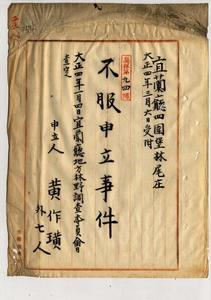 宜蘭廳四圍堡林尾庄
大正四年三月六日受附
高林第九四號
不服申立事件
大正四年一月四日宜蘭廳地方林野調查委員會
查定
申立人
黃作璜
外七人